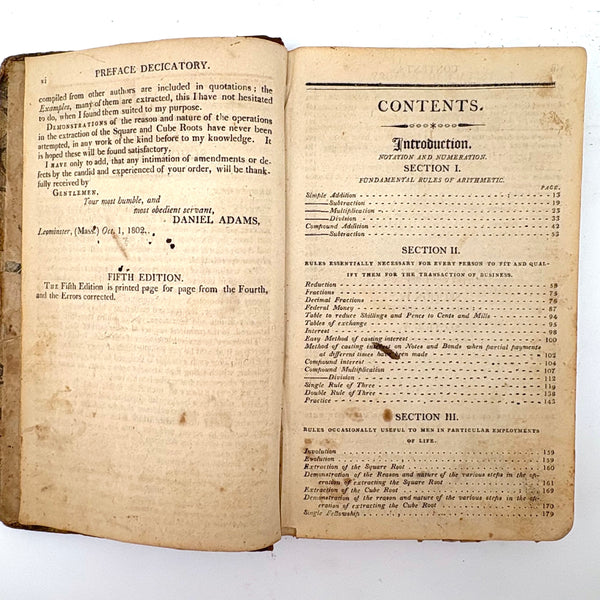 xi
PREFACE DECICATORY.
compiled from other authors are included in quotations; the
Examples, many of them are extracted, this I have not hesitated
to do, when I found them suited to my purpose.
DEMONSTRATIONS of the reason and nature of the operations
in the extraction of the Square and Cube Roots have never been
attempted, in any work of the kind before to my knowledge. It
is hoped these will be found satisfactory.
I HAVE only to add, that any intimation of amendments or de-
fects by the candid and experienced of your order, will be thank-
fully received by
GENTLEMEN,
Your most humble, and
most obedient servant,
DANIEL ADAMS,
Leominster, (Mass.) Oct. 1, 1802.
FIFTH EDITION.
THE Fifth Edition is printed page for page from the Fourth,
and the Errors corrected.
CONTENTS.
Introduction.
NOTATION AND NUMERATION.
SECTION I.
FUNDAMENTAL RULES OF ARITHMETIC.
PAGE.
Simple Addition 13
——Subtraction 19
——Multiplication 23
——Division 33
Compound Addition 42
——Subtraction 53
SECTION II.
RULES ESSENTIALLY NECESSARY FOR EVERY PERSON TO FIT AND QUAL-
IFY THEM FOR THE TRANSACTION OF BUSINESS.
Reduction 58
Fractions 75
Decimal Fractions 76
Federal Money 87
Table to reduce Shillings and Pence to Cents and Mills 94
Tables of exchange 95
Interest 98
Easy Method of casting interest 100
Method of casting interest on Notes and Bonds when partial payments
at different times have been made 102
Compound interest 104
Compound Multiplication 107
——Division 112
Single Rule of Three 119
Double Rule of Three 138
Practice 143
SECTION III.
RULES OCCASIONALLY USEFUL TO MEN IN PARTICULAR EMPLOYMENTS
OF LIFE.
Involution 159
Evolution 159
Extraction of the Square Root 160
Demonstration of the Reason and nature of the various steps in the op-
eration of extracting the Square Root 161
Extraction of the Cube Root 169
Demonstration of the reason and nature of the various steps in the ope-
eration of extracting the Cube Root 170
Single Fellowship 179